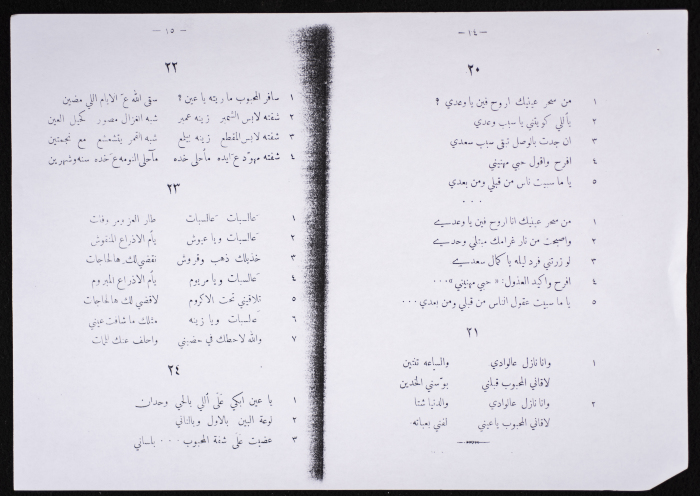 — ١٤ —
٢٠
١ من سحر عينيك اروح فين يا وعدي ؟
٢ ياللي كويتني يا سبب وعدي
٣ ان جدت بالوصل تبقى سبب سعدي
٤ افرح واقول حبي مهنيني
٥ يا ما سبيت ناس من قبلي ومن بعدي
. . .
١ من سحر عينيك انا اروح فين يا وعديـه
٢ واصبحت من نار غرامك وحديـه
٣ لو زرتني فرد ليله يا كمال سعديـه
٤ افرح واكيد العذول: « حبي مهنيني » . . .
٥ يا ما سبيت عقول الناس من قبلي ومن بعدي . . .
٢١
١ وانا نازل عالوادي والساعه ثنتين
لاقاني المحبوب قبلني بوسني الخدين
٢ وانا نازل عالوادي والدنيا شتا
لاقاني المحبوب ياعيني لفني بعباته
— ١٥ —
٢٢
١ سافر المحبوب ما ريته يا عين ؟ سقى الله ع الايام اللي مضين
٢ شفته لابس الشمبر زينه عمبر شبه الغزال مصور كحيل العين
٣ شفته لابس المقطع زينه يلمع شبه القمر يتشعشع مع نجمتين
٤ شفته مهود ع ايده مأحلى خده مأحلى النومه ع خده سنه وشهرين
٢٣
١ عالسبات عالسبات طار العز ومر وفات
٢ عالسبات ويا عبوش يام الاذراع المنقوش
٣ خذيلك ذهب وقروش نقضي لك هالحاجات
٤ عالسبات ويا مريوم يام الاذراع المبروم
٥ تلاقيني تحت الاكروم لاقضي لك هالحاجات
٦ عالسبات ويا زينه مثلك ما شافت عيني
٧ والله لاحطك في حضيني واحلف عنك
٢٤
١ يا عين ابكي على اللي بالحي وحدان
٢ لوعة البين بالاول وبالثاني
٣ عضيت على شفة المحبوب . . . بلساني